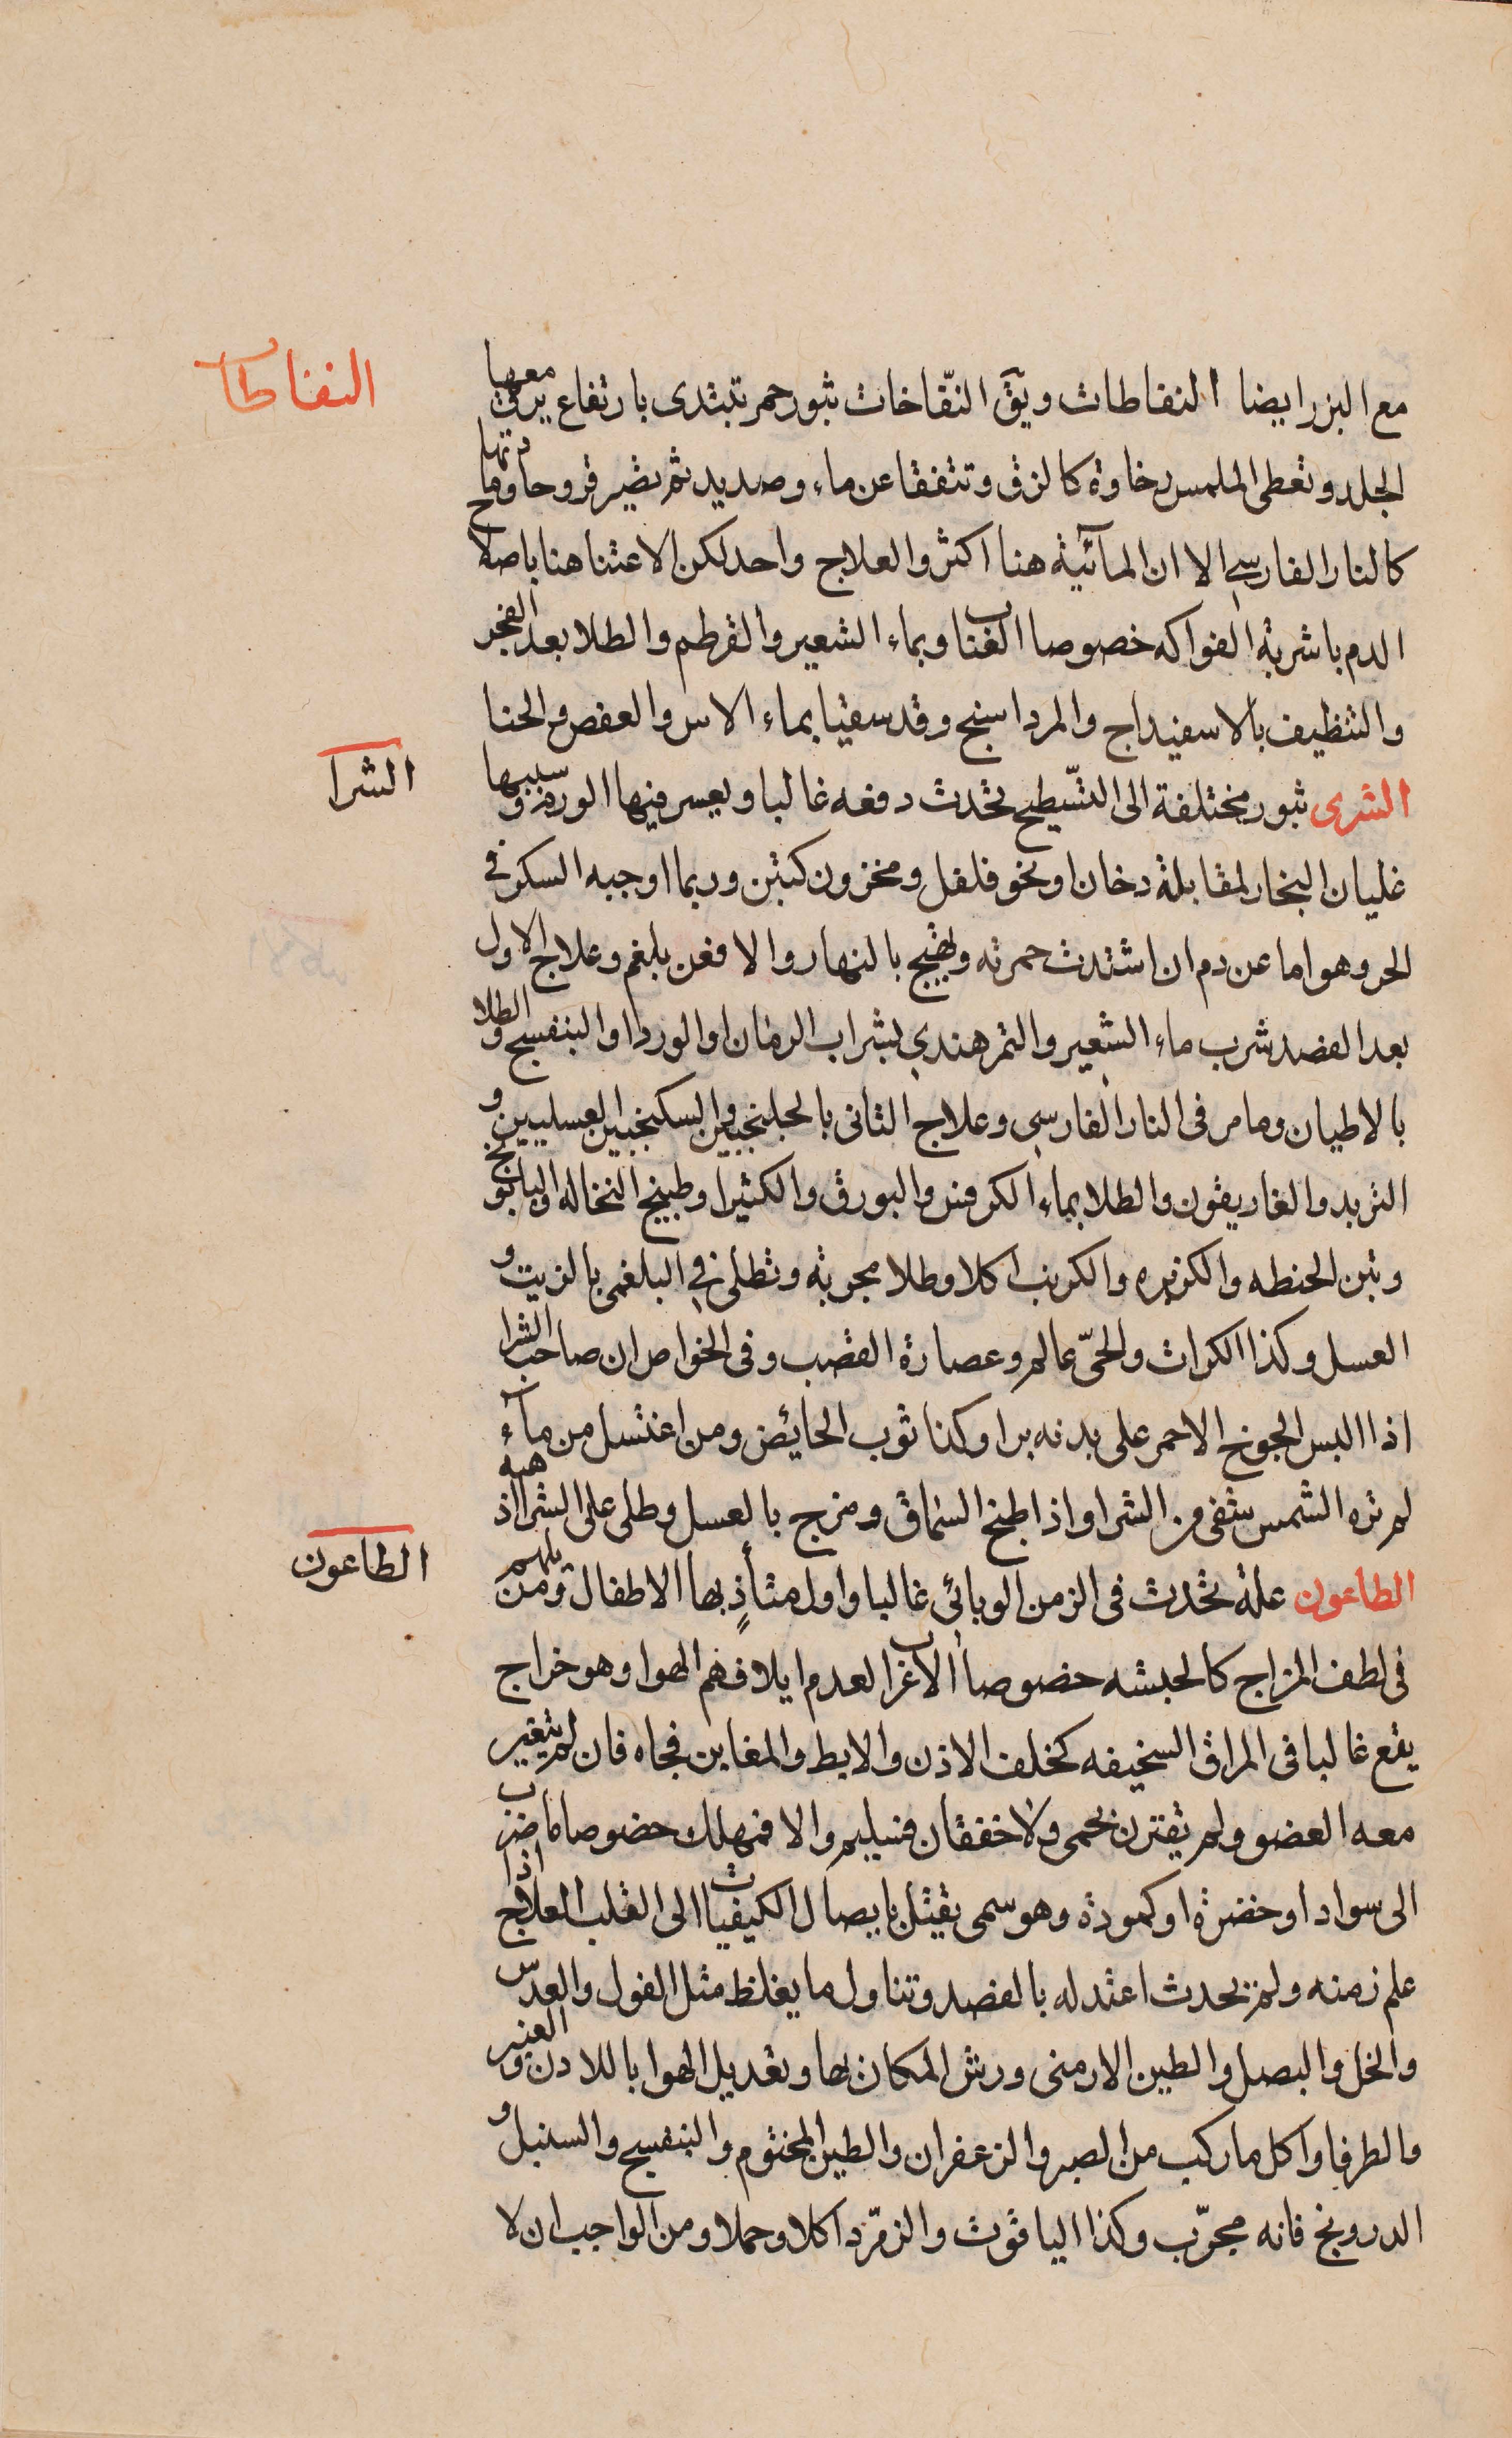 النفاطات
مع البزر ايضا النفاطات ويقَ النفّاخات بثور حمر تبتدى بارتفاع يرق معها
الجلد وتعطى الملمس رخاوة كالزق وتتفقا عن ماء وصديد ثم تصير قروحا ومادتها
كالنار الفارسي الا ان المآئية هنا اكثر والعلاج واحد لكن الاعتنا هنا باصلاح
الدم باشربة الفواكه خصوصا العناب وبماء الشعير والقرطم والطلا بعد الفجر
والتنظيف بالاسفيداج والمرداسنج وقد سقيا بماء الاس والعفص والحنا
الشرا
الشرى بثور مختلفة الى التسّطيح تحدث دفعه غالبا ويعسر فيها الورم وسببها
غليان البخار لمقابلة دخان او نحو فلفل ومخزون كتبن وربما اوجبه السكر في
الحر وهو اما عن دم ان اشتدت حمرته ويهيج بالنهار والا فعن بلغم وعلاج الاول
بعد الفصد شرب ماء الشعير والتمر هندي بشراب الرمان او الورد او البنفسج والطلا
بالاطيان وما مر فى النار الفارسي وعلاج الثانى بالجلنجبين والسكنجبين العسليين و
التربد والغاريقون والطلا بماء الكرفس والبورق والكثيرا وطبيخ النخاله والبابونج
وتبن الحنطه والكزبره والكرنب اكلا وطلا مجربة وتطلى في البلغمى بالزيت و
العسل وكذا الكراث والحىّ عالم وعصارة القصب وفى الخواص ان صاحب الشرا
اذا البس الجوخ الاحمر على بدنه برا وكذا ثوب الحائض ومن اغتسل من مآء
لم تره الشمس شفى من الشرا واذا طبخ السماق ومزج بالعسل وطلى على الشرا اذهبه
الطاعون
الطاعون علة تحدث فى الزمن الوبائى غالبا واول متأذٍ بها الاطفال ومن يليهم
فى لطف المزاج كالحبشه خصوصا الاغراب لعدم ايلافهم الهوا وهو خراج
يقع غالبا فى المراق السخيفه كخلف الاذن والابط والمغابن فجاه فان لم يتغير
معه العضو ولم تقترن بحمى ولا خفقان فسليم والا فمهلك خصوصا ما ضرب
الى سواد او خضرة او كمودة وهو سمى يقتل بايصال الكيفيات الى القلب العلاج اذا
علم زمنه ولم يحدث اعتد له بالفصد وتناول ما يغلظ مثل الفول والعدس
والخل والبصل والطين الارمنى ورش المكان بها وتعديل الهوا باللادن والعنبر
والطرفا واكل ما ركب من الصبر والزعفران والطين المختوم والبنفسج والسنبل و
الدرونج فانه مجرّب وكذا الياقوت والزمرّد اكلا وحملا ومن الواجب ان لا